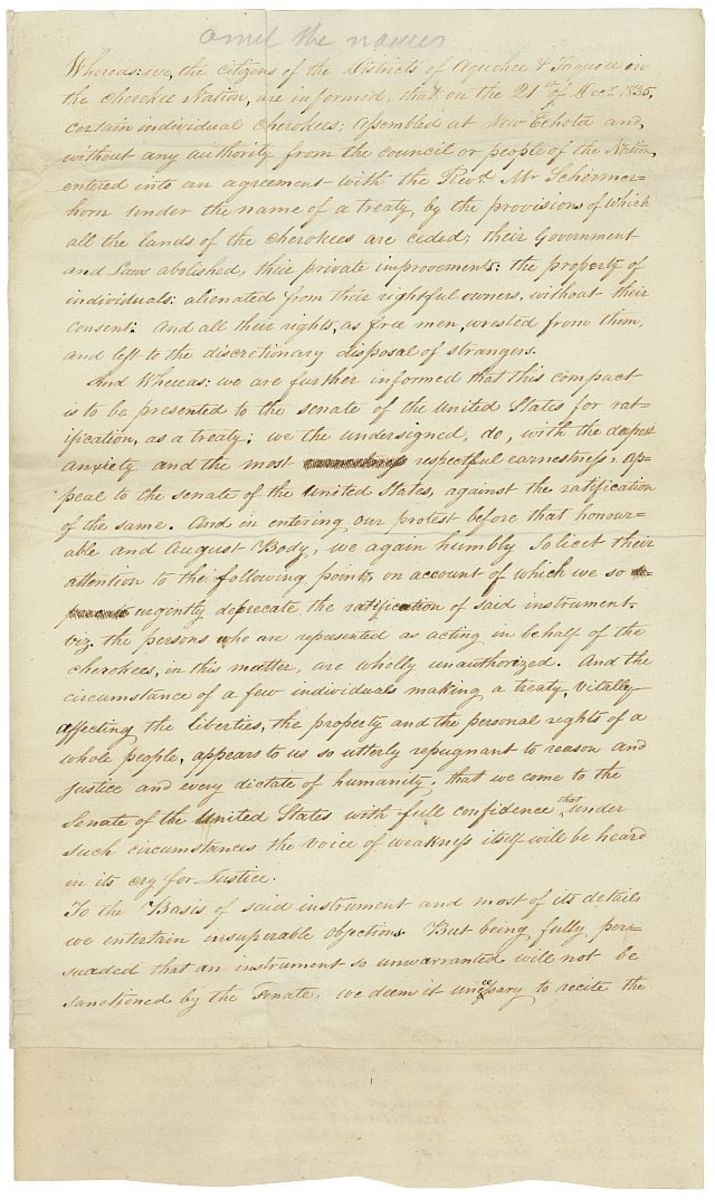 omit the names
Whereas: we, the citizens of the Districts of Aquohee & Taquoee in
the Cherokee Nation, are informed, that on the 21st of Decr. 1835,
certain individual Cherokees; assembled at New Echota and,
without any authority from the council or people of the Nation,
entered into an agreement with the Revd. Mr Schermer=
horn under the name of a treaty, by the provisions of which
all the lands of the Cherokees are ceded; their Government
and Laws abolished, their private improvements: the property of
individuals: alienated from their rightful owners, without their
consent: And all their rights, as free men, wrested from them,
and left to the discretionary disposal of strangers.
And Whereas: we are further informed that this compact
is to be presented to the senate of the United States for rat=
ification, as a treaty; we the undersigned, do, with the deepest
anxiety and the most respectful earnestness, ap=
peal to the senate of the United States, against the ratification
of the same. And in entering our protest before that honour=
able and August Body, we again humbly solicit their
attention to the following points, on account of which we so
urgently deprecate the ratification of said instrument.
viz. the persons who are represented as acting in behalf of the
Cherokees, in this matter, are wholly unauthorized. And the
circumstance of a few individuals making a treaty, vitally
affecting the liberties, the property and the personal rights of a
whole people, appears to us so utterly repugnant to reason and
justice and every dictate of humanity, that we come to the
Senate of the United States with full confidence that under
such circumstances the voice of weakness itself will be heard
in its cry for Justice.
To the Basis of said instrument and most of its details
we entertain insuperable objections. But being fully per=
suaded that an instrument so unwarranted will not be
sanctioned by the Senate. we deem it to recite the